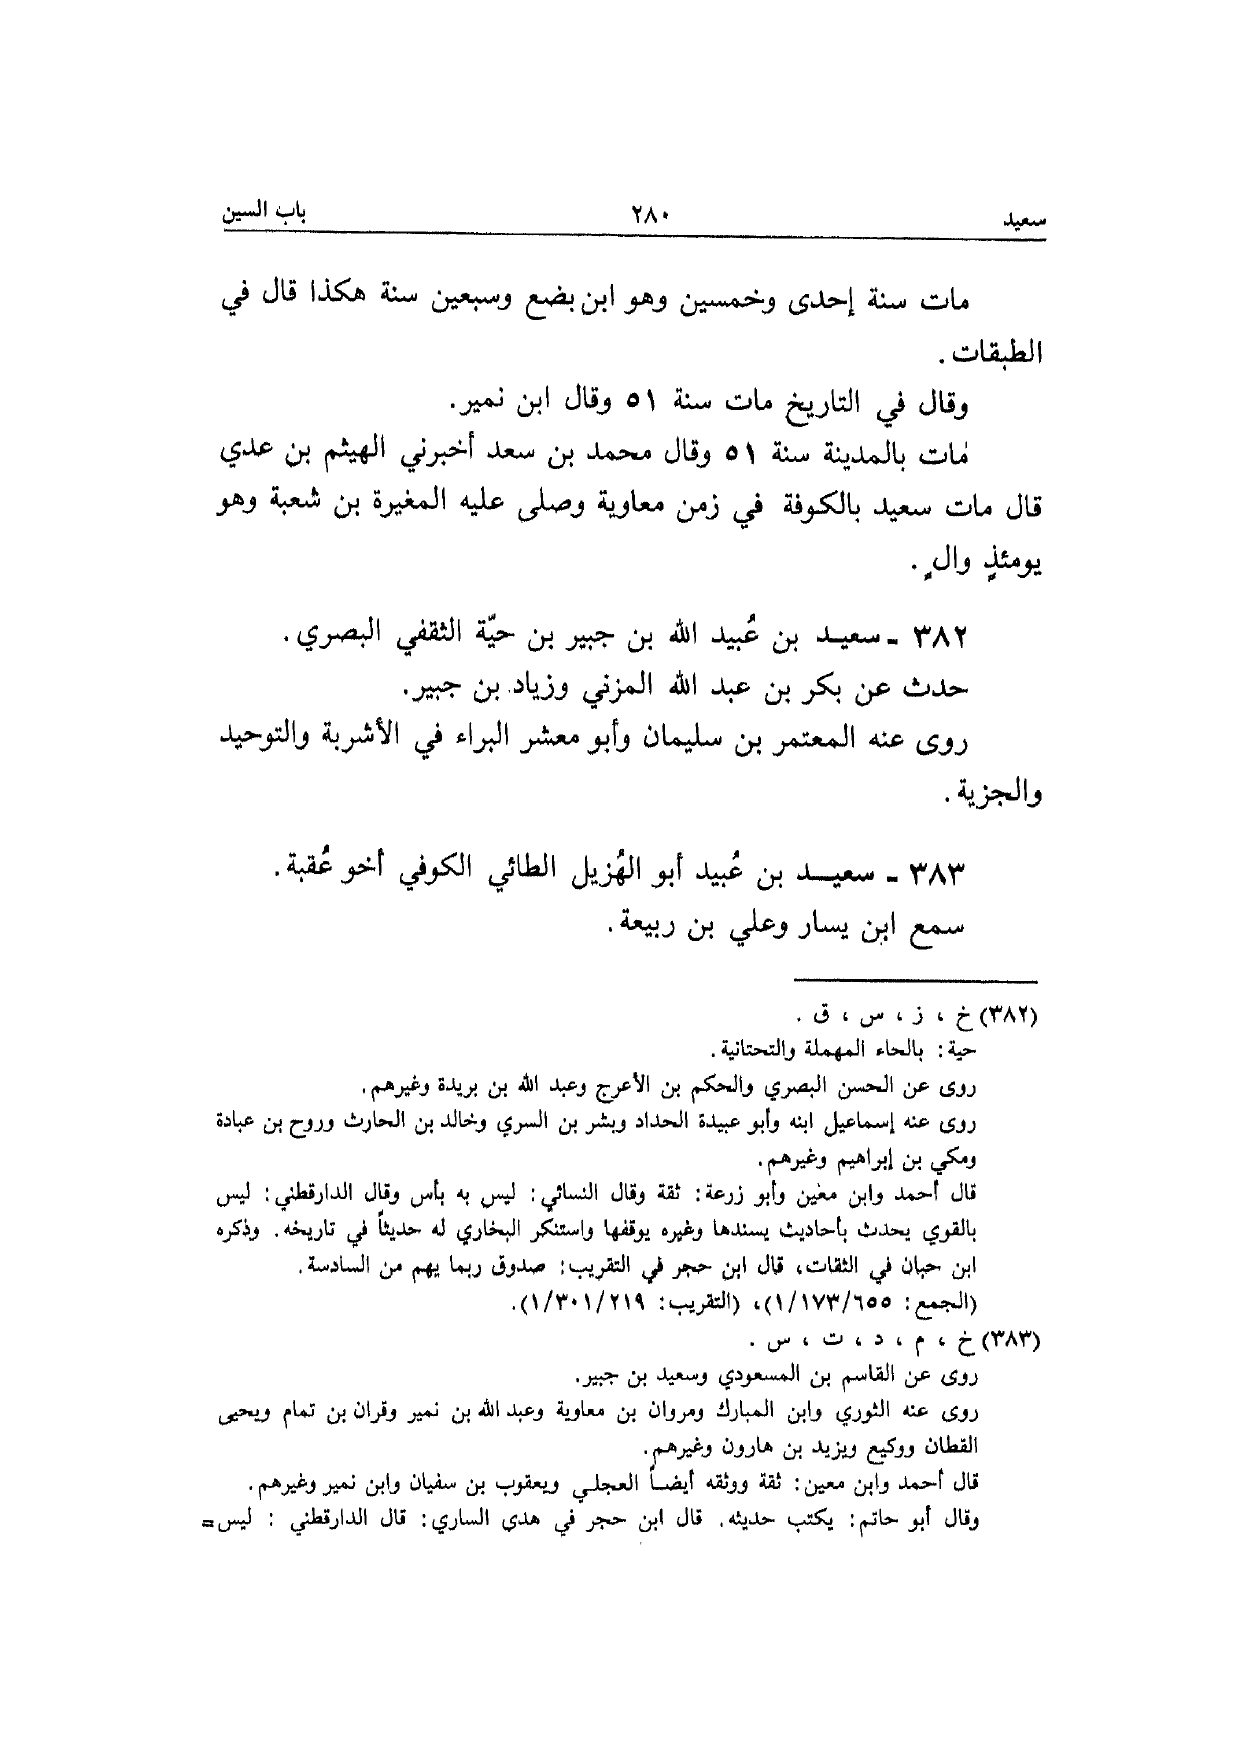 سعيد ٢٨٠ باب السين
مات سنة إحدى وخمسين وهو ابن بضع وسبعين سنة هكذا قال في
الطبقات .
وقال في التاريخ مات سنة ٥١ وقال ابن نمير.
مات بالمدينة سنة ٥١ وقال محمد بن سعد أخبرني الهيثم بن عدي
قال مات سعيد بالكوفة في زمن معاوية وصلى عليه المغيرة بن شعبة وهو
يومئذٍ والٍ .
٣٨٢ ـ سعيـد بن عُبيد الله بن جبير بن حيّة الثقفي البصري .
حدث عن بكر بن عبد الله المزني وزياد بن جبير.
روى عنه المعتمر بن سليمان وأبو معشر البراء في الأشربة والتوحيد
والجزية .
٣٨٣ ـ سعيــد بن عُبيد أبو الهُزيل الطائي الكوفي أخو عُقبة .
سمع ابن يسار وعلي بن ربيعة .
(٣٨٢) خ ، ز ، س ، ق .
حية : بالحاء المهملة والتحتانية .
روى عن الحسن البصري والحكم بن الأعرج وعبد الله بن بريدة وغيرهم.
روى عنه إسماعيل ابنه وأبو عبيدة الحداد وبشر بن السري وخالد بن الحارث وروح بن عبادة
ومكي بن إبراهيم وغيرهم.
قال أحمد وابن معين وأبو زرعة : ثقة وقال النسائي : ليس به بأس وقال الدارقطني : ليس
بالقوي يحدث بأحاديث يسندها وغيره يوقفها واستنكر البخاري له حديثاً في تاريخه . وذكره
ابن حبان في الثقات، قال ابن حجر في التقريب : صدوق ربما يهم من السادسة .
(الجمع : ١/١٧٣/٦٥٥)، (التقريب : ١/٣٠١/٢١٩).
(٣٨٣) خ ، م ، د ، ت ، س .
روى عن القاسم بن المسعودي وسعيد بن جبير.
روى عنه الثوري وابن المبارك ومروان بن معاوية وعبد الله بن نمير وقران بن تمام ويحيى
القطان ووكيع ويزيد بن هارون وغيرهم.
قال أحمد وابن معين : ثقة ووثقه أيضـاً العجلي ويعقوب بن سفيان وابن نمير وغيرهم .
وقال أبو حاتم : يكتب حديثه . قال ابن حجر في هدي الساري : قال الدارقطني : ليس=